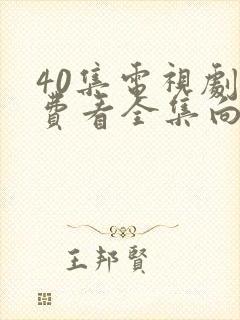 40集電視劇
費看全集向
王邦賢